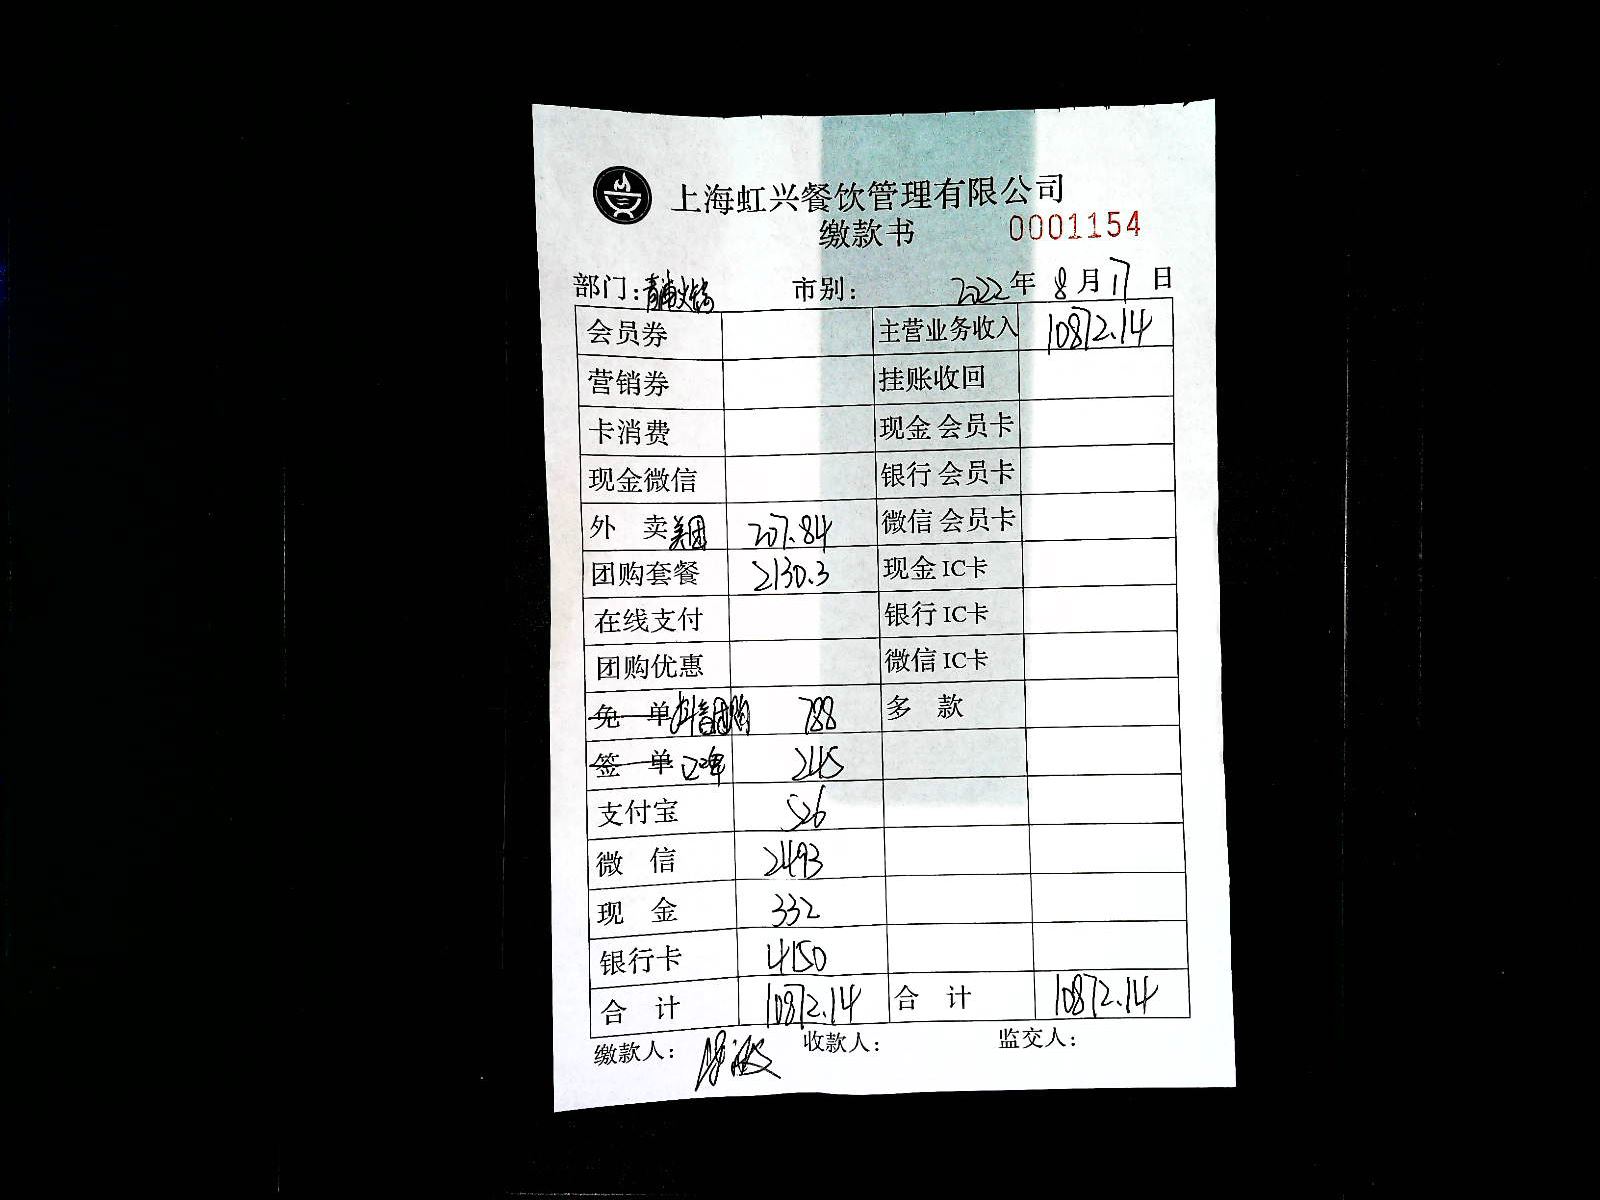 上海虹兴餐饮管理有限公司
缴款书 0001154
部门：青浦火锅 市别： 2022年 8月17日
会员券 主营业务收入 10872.14
营销券 挂账收回
卡消费 现金 会员卡
现金微信 银行 会员卡
外 卖 美团 207.84 微信 会员卡
团购套餐 2130.3 现金 IC卡
在线支付 银行 IC卡
团购优惠 微信 IC卡
免 单 抖音团购 788 多 款
签 单 口碑 245
支付宝 526
微 信 2493
现 金 332
银行卡 4150
合 计 10872.14 合 计 10872.14
缴款人： 收款人： 监交人：